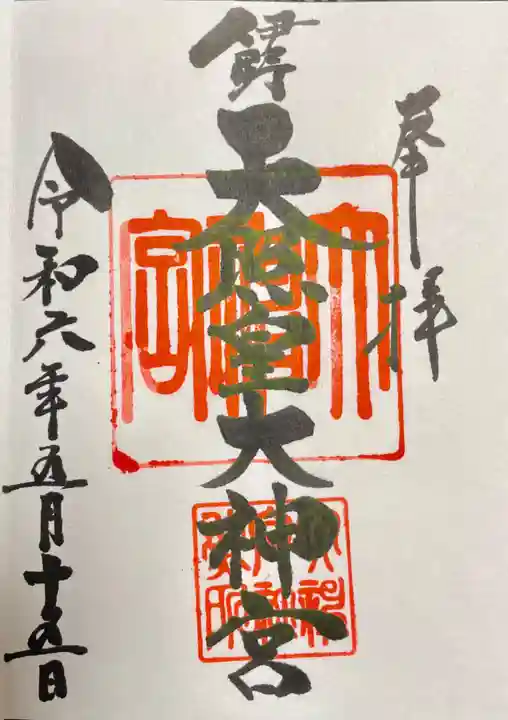 奉拝
天照皇大神宮
令和六年五月十五日
大神宮